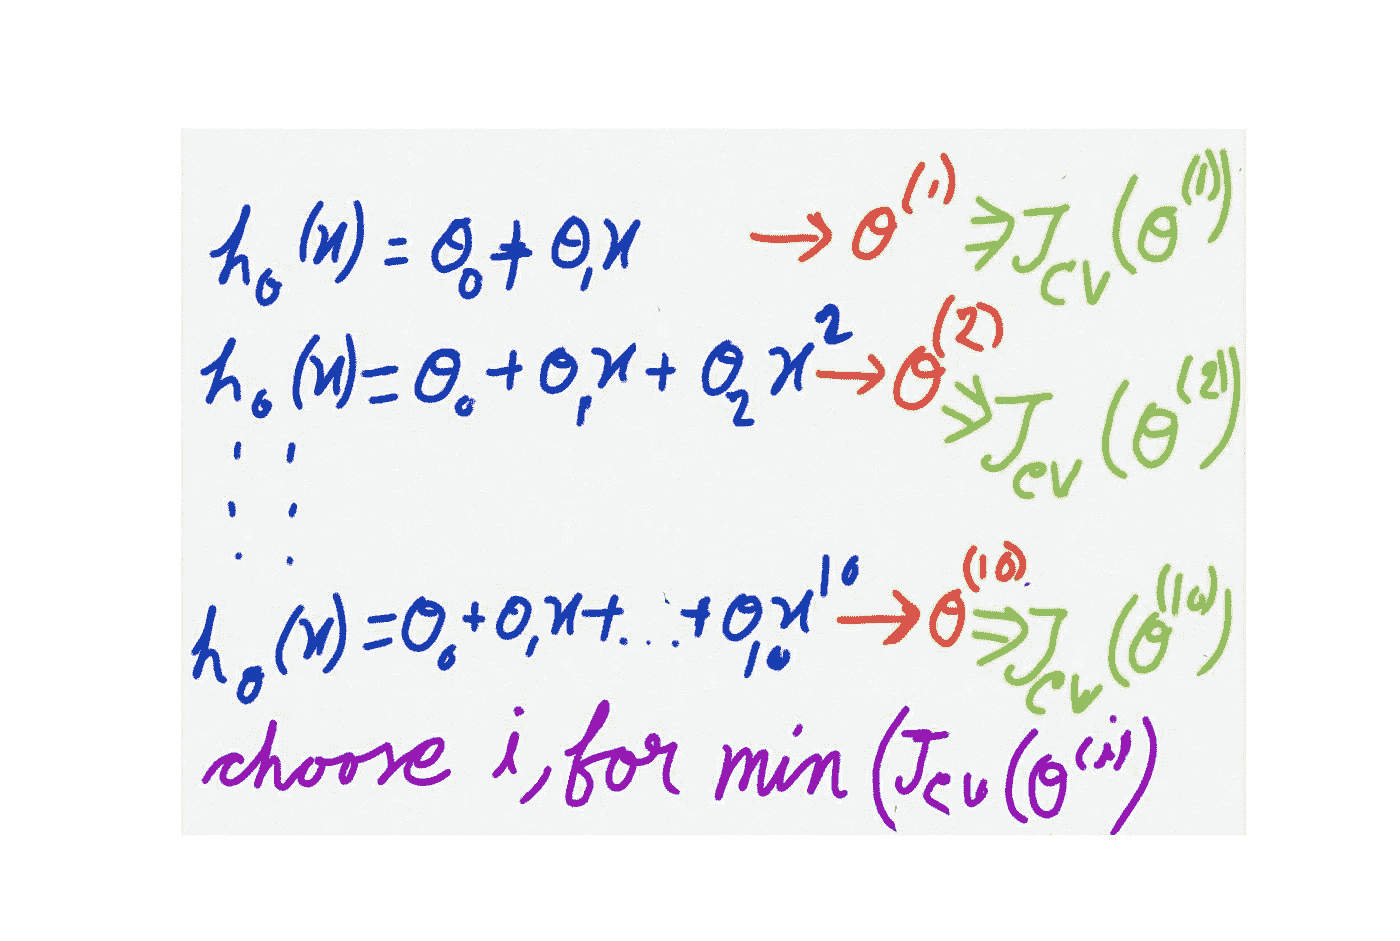 h_θ(x) = θ₀ + θ₁x → θ⁽¹⁾ ⇒ J_CV(θ⁽¹⁾)
h_θ(x) = θ₀ + θ₁x + θ₂x² → θ⁽²⁾ ⇒ J_CV(θ⁽²⁾)
⋮ ⋮
h_θ(x) = θ₀ + θ₁x + ... + θ₁₀x¹⁰ → θ⁽¹⁰⁾ ⇒ J_CV(θ⁽¹⁰⁾)
choose i, for min (J_CV(θ⁽ⁱ⁾)